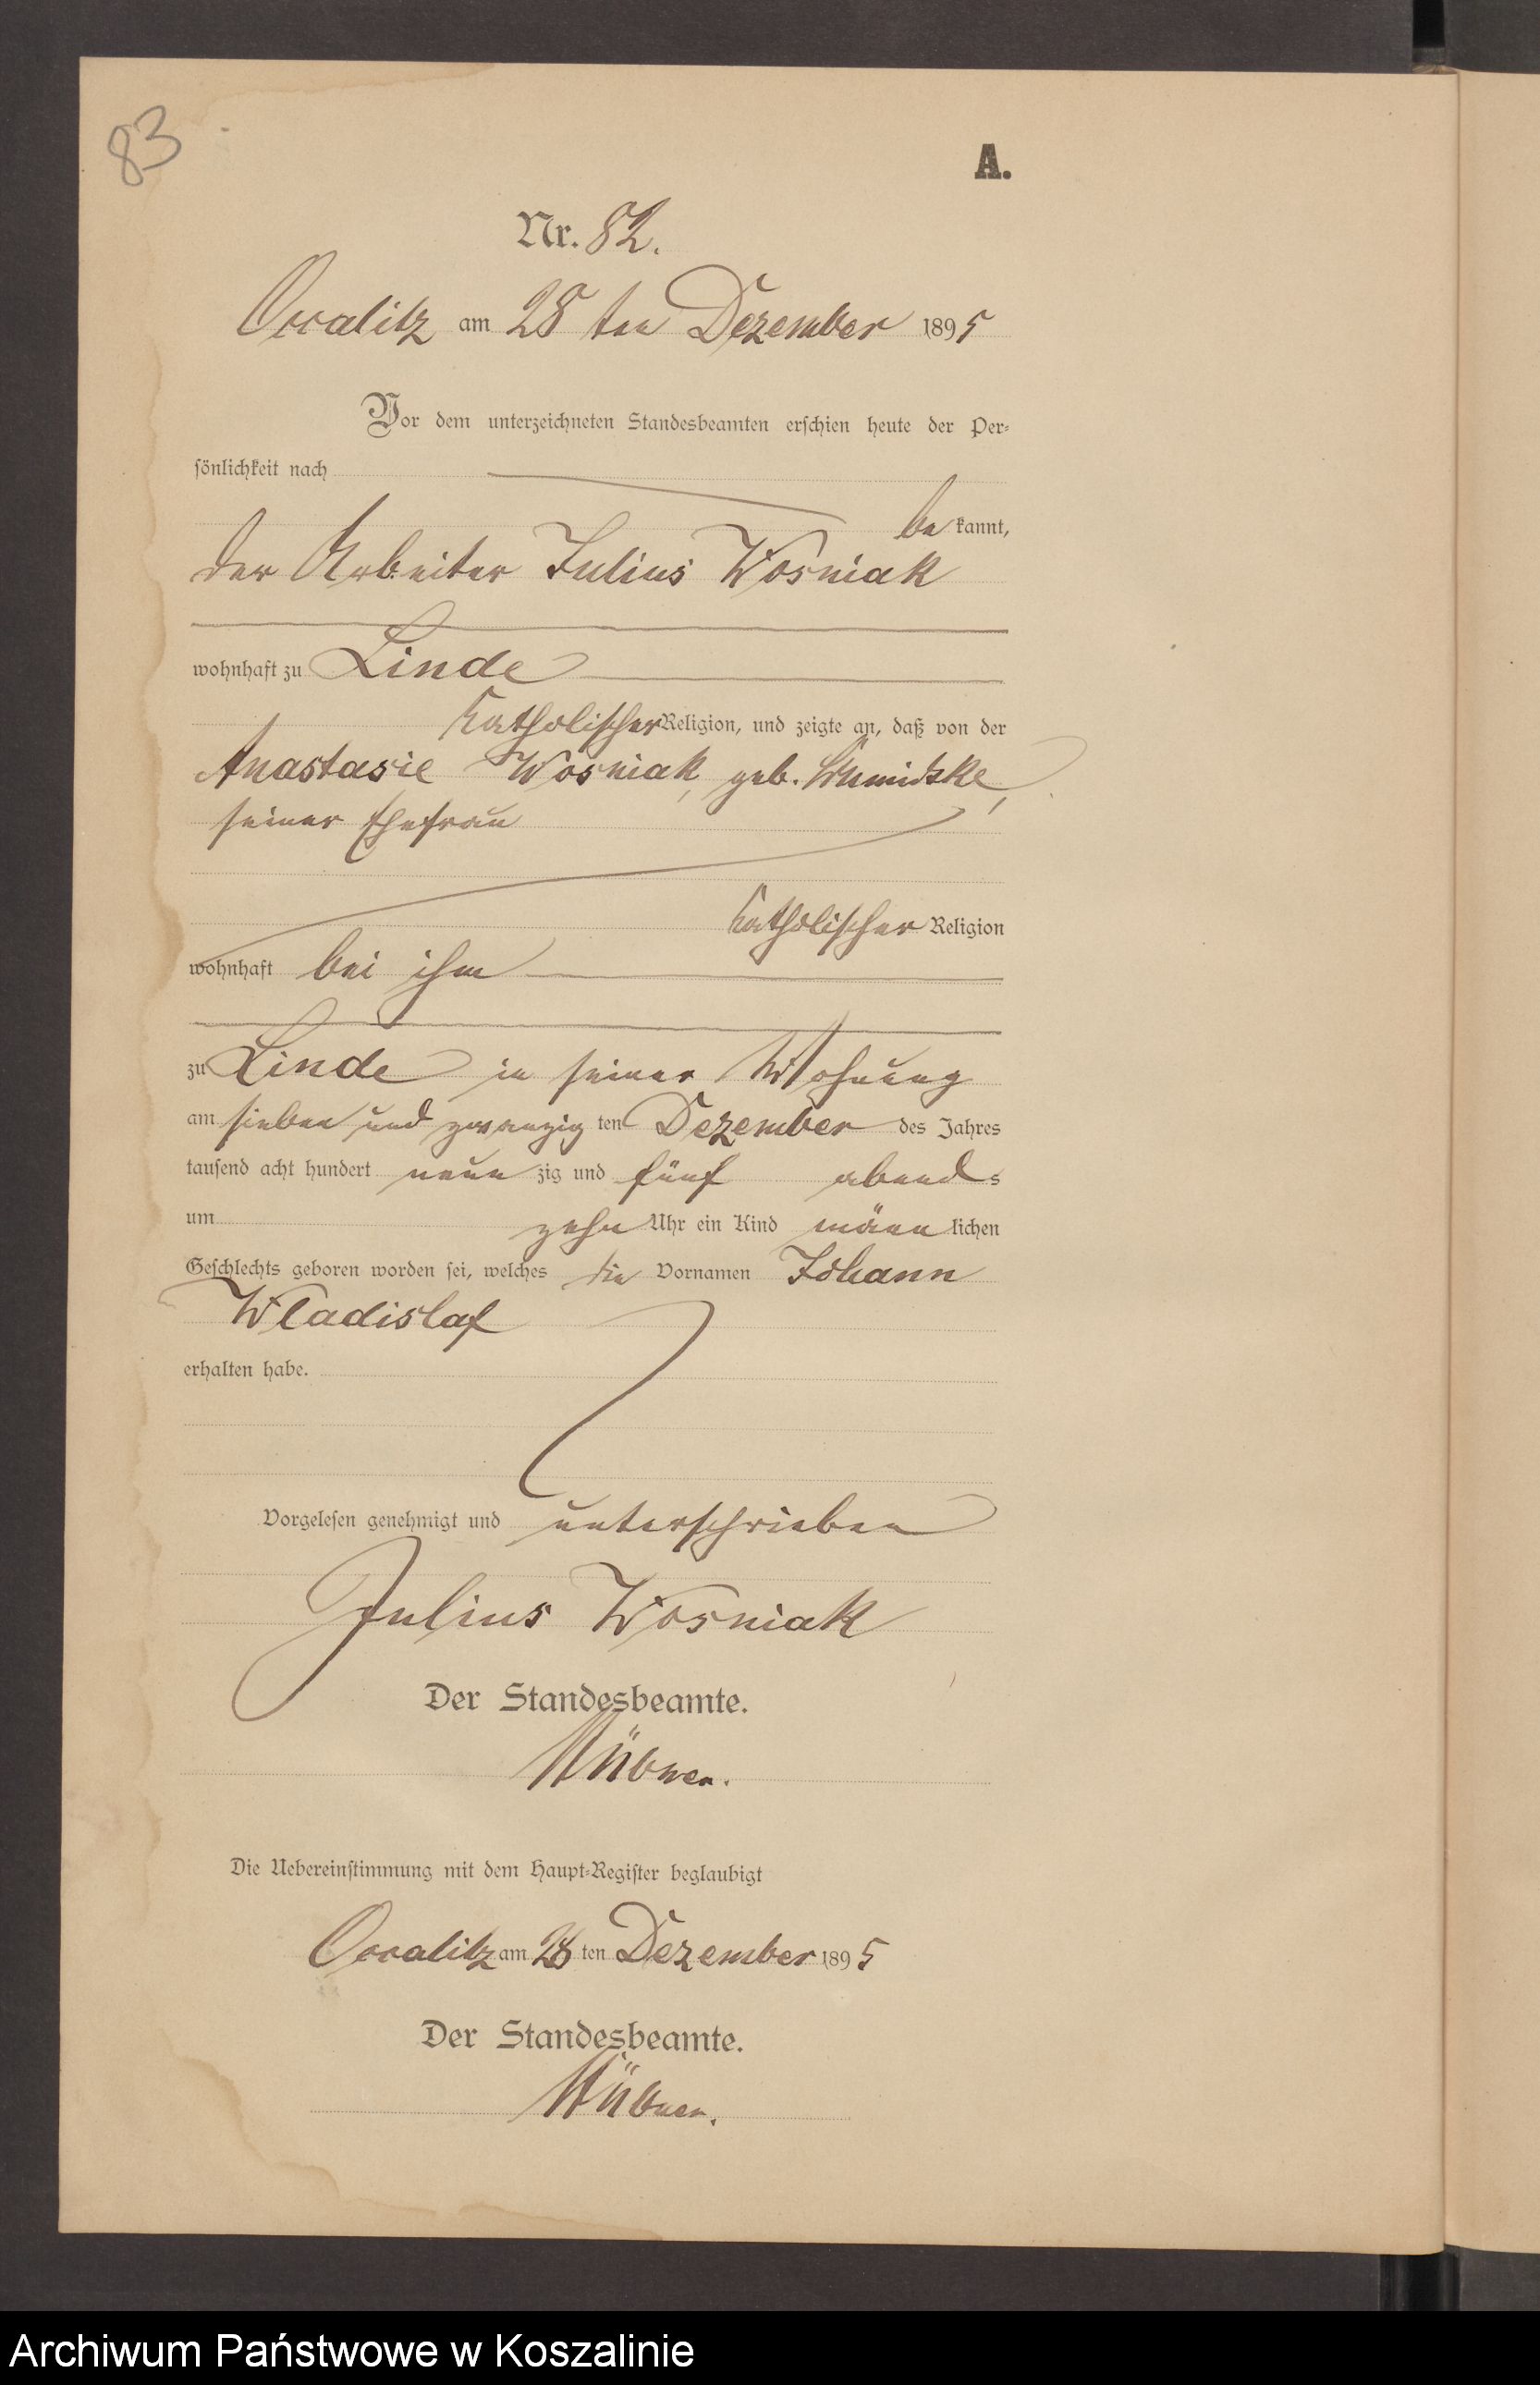 83
A.
Nr. 82.
Occalitz am 28 ten Dezember 1895
Vor dem unterzeichneten Standesbeamten erschien heute der Per-
sönlichkeit nach
be kannt,
der Arbeiter Julius Wosniak
wohnhaft zu Linde
katholischer Religion, und zeigte an, daß von der
Anastasie Wosniak, geb.
seiner Ehefrau
katholischer Religion
wohnhaft bei ihm
zu Linde in seiner Wohnung
am sieben und zwanzig ten Dezember des Jahres
tausend acht hundert neun zig und fünf abends
um zehn Uhr ein Kind männ lichen
Geschlechts geboren worden sei, welches die Vornamen Johann
Wladislaf
erhalten habe.
Vorgelesen genehmigt und unterschrieben
Julius Wosniak
Der Standesbeamte.
Hübner.
Die Uebereinstimmung mit dem Haupt-Register beglaubigt
Occalitz am 28 ten Dezember 1895
Der Standesbeamte.
Hübner.
Archiwum Państwowe w Koszalinie